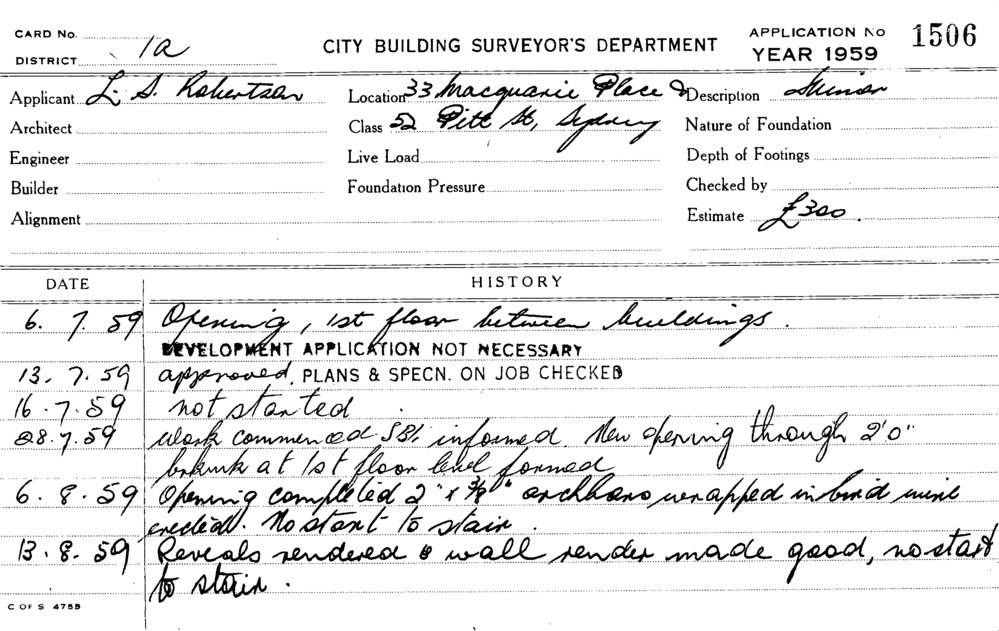 CARD No. 1a
CITY BUILDING SURVEYOR'S DEPARTMENT
APPLICATION No 1506
DISTRICT
YEAR 1959
Applicant L. S. Robertson
Location 33 Macquarie Place &
Description Minor
Architect
Class 52 Pitt St, Sydney
Nature of Foundation
Engineer
Live Load
Depth of Footings
Builder
Foundation Pressure
Checked by
Alignment
Estimate £300.
DATE HISTORY
6. 7. 59 Opening, 1st floor between buildings.
DEVELOPMENT APPLICATION NOT NECESSARY
13. 7. 59 approved. PLANS & SPECN. ON JOB CHECKED
16. 7. 59 not started
28. 7. 59 Work commenced informed New opening through 2'0"
at 1st floor level formed
6. 8. 59 Opening completed 2" x 3/8" archbars wrapped in bird wire
erected. No start to stair.
13. 8. 59 Reveals rendered & wall render made good, no start
to stair.
C OF S 475B